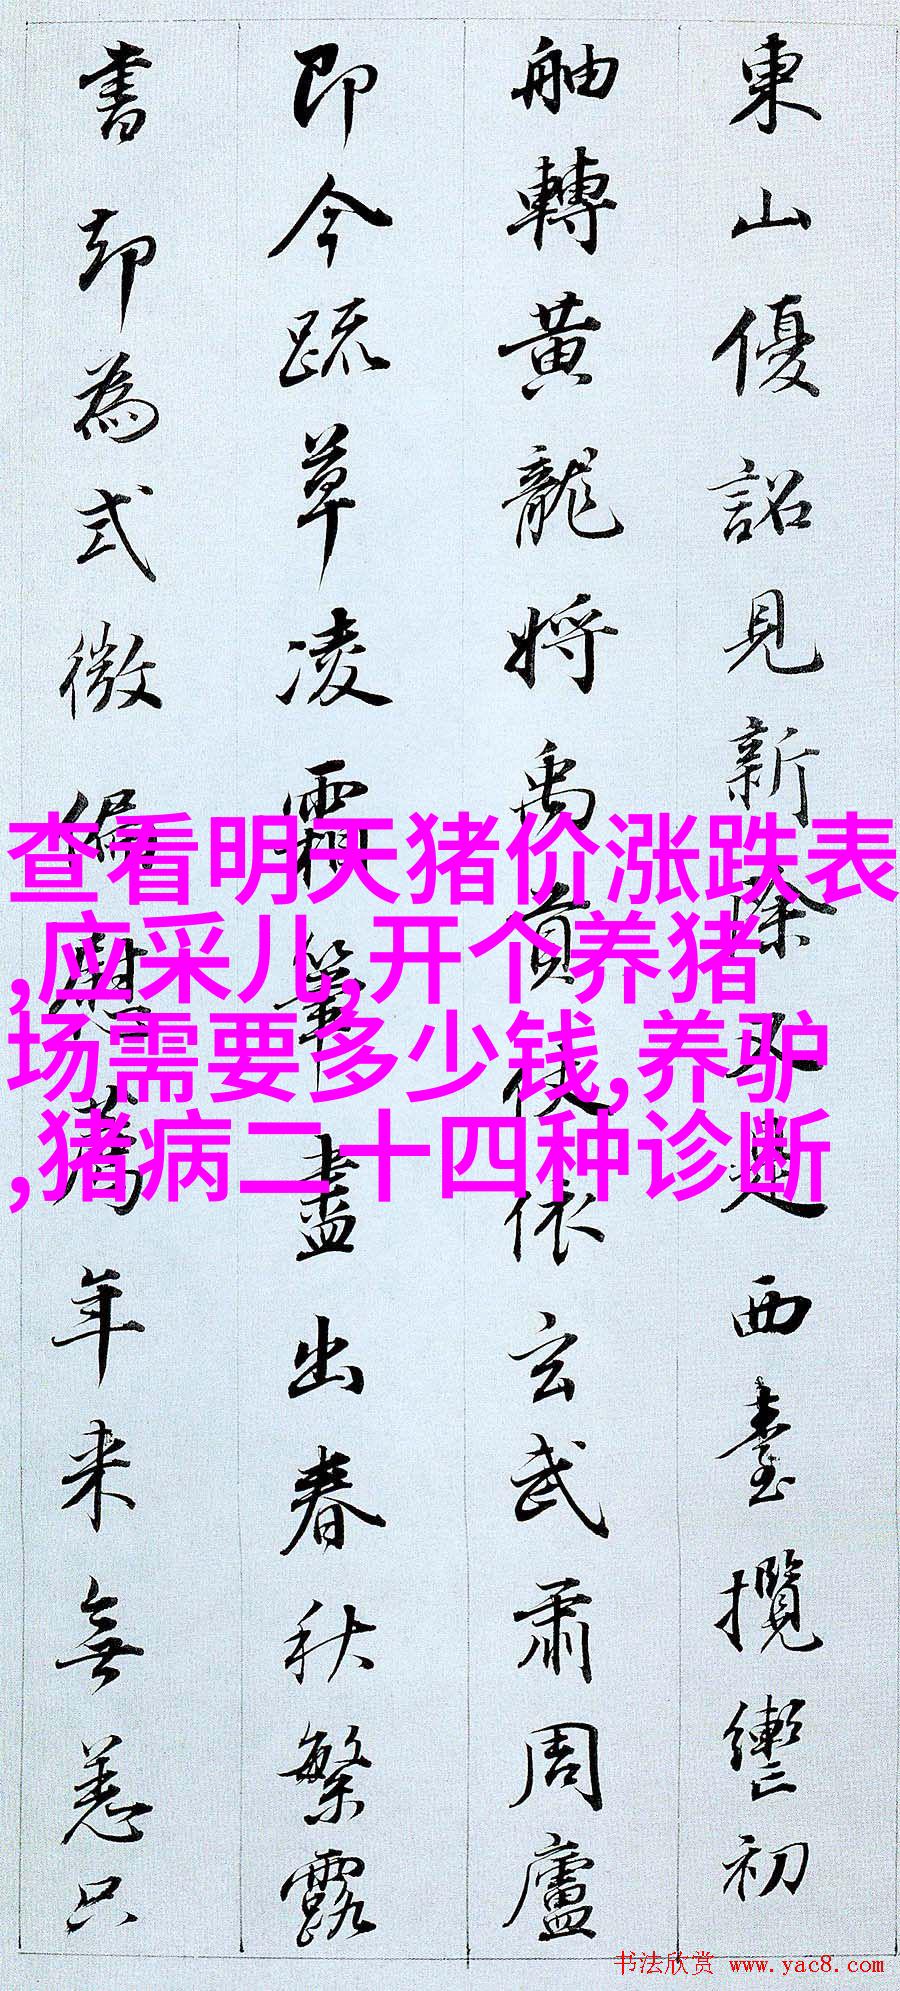 東山優詔見新除又還西臺攬轡初
舳轉黃龍將禹貢使依玄武肅周廬
即今疏草凌霜筆盡出春秋繁露
書却為式微偏慰薦年来無恙只
查看明天猪价涨跌表
,应采儿,开个养猪
场需要多少钱,养驴
,猪病二十四种诊断
书法欣赏 www.yac8.com